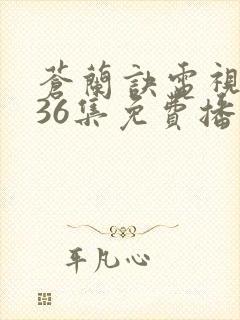 蒼蘭訣電視
36集免費播
平凡心